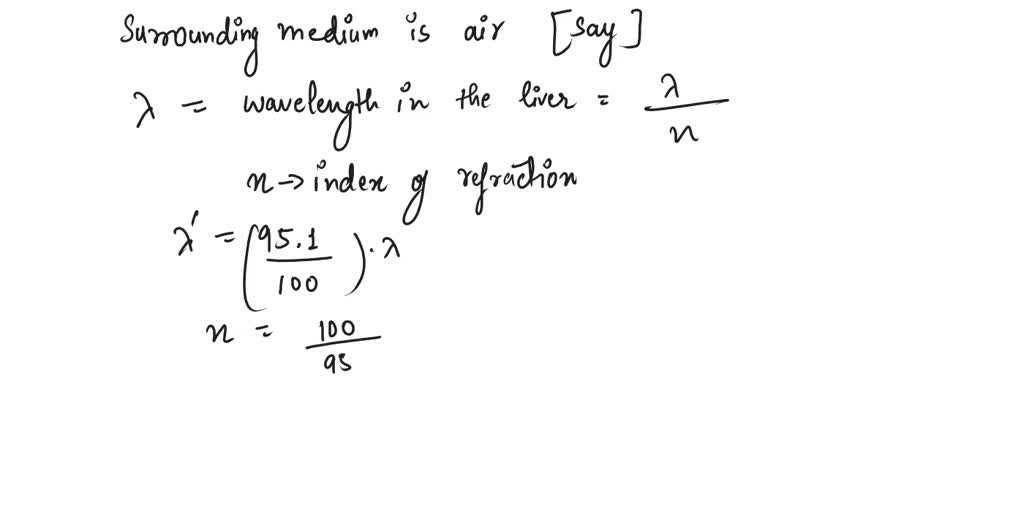 Surrounding medium is air [say]
λ = wavelength in the liver = λ/n
n → index of refraction
λ' = (95.1/100) · λ
n = 100/95